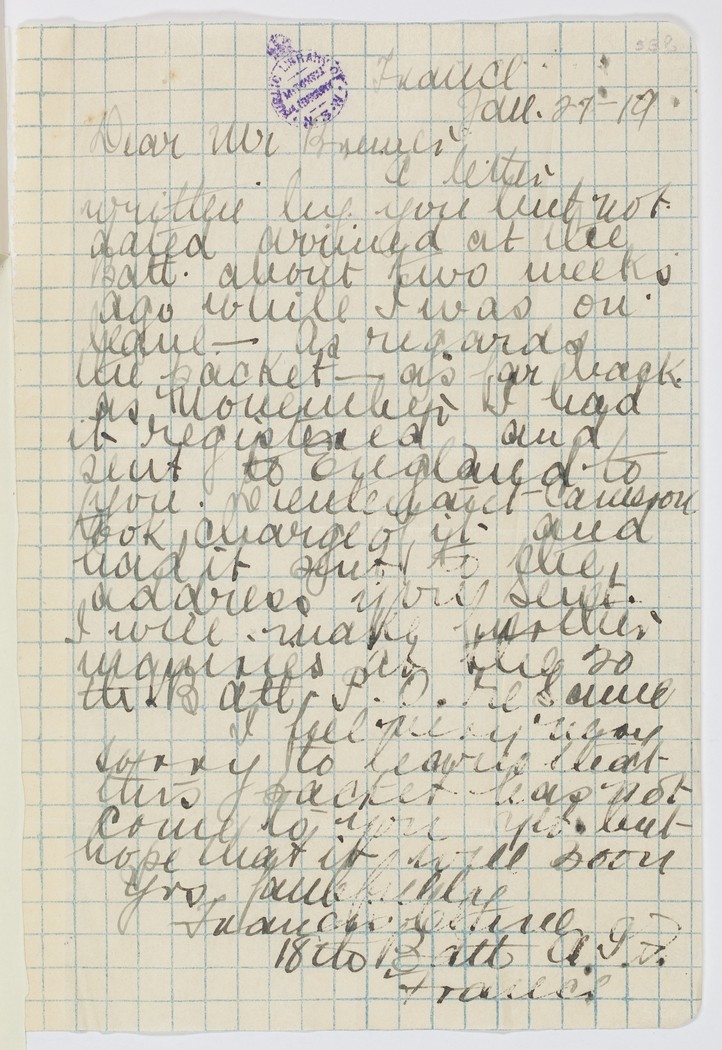 France
Jan. 27-19
Dear Mr Brewer
A letter
written by you but not
dated arrived at the
Batt. about two weeks
ago while I was on
leave — As regards
the packet — as far back
as November I had
it registered and
sent to England to
you. Lieutenant Cameron
took charge of it and
had it sent to the
address you sent.
I will make further
inquiries at the 20
th. Batt. P.O. re same
I feel very very
sorry to learn that
this packet has not
come to you yet but
hope that it will soon
Yrs faithfully
Francis
18th Batt A.I.F.
France
PUBLIC LIBRARY OF N.S.W.
MITCHELL LIBRARY